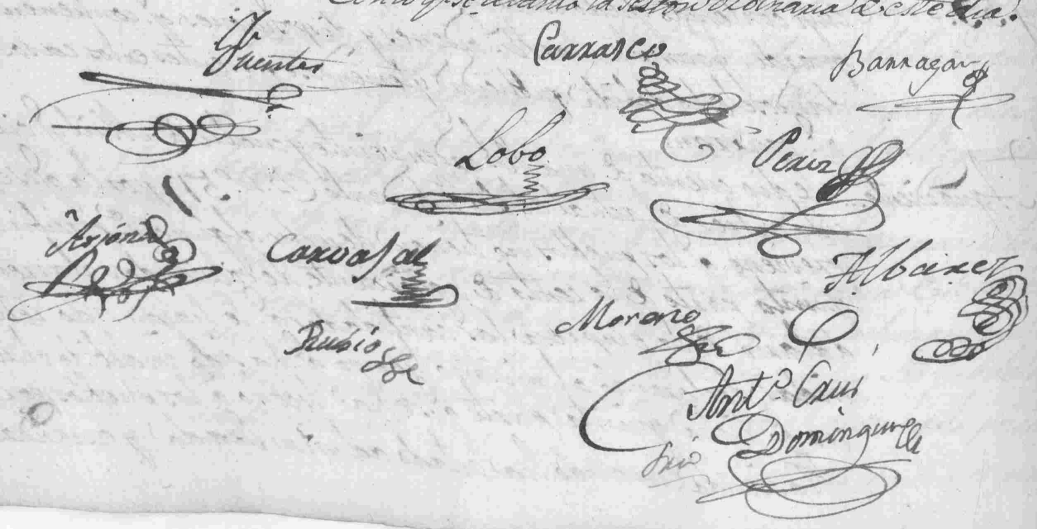 Con lo q.e se levantó la sesion ordinaria de este dia.
Fuentes
Carrasco
Barragan
Lobo
Perez
Arjona
Carvajal
Albarez
Moreno
Rubio
Ant.o Cruz
Dominguez
Srio